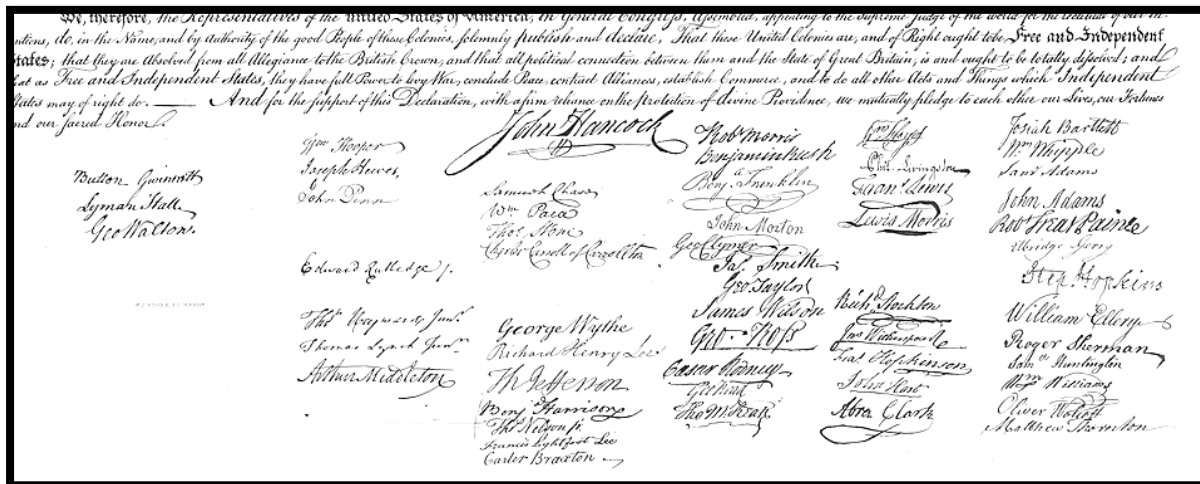 We, therefore, the Representatives of the united States of America, in General Congress, Assembled, appealing to the Supreme Judge of the world for the rectitude of our in-
tentions, do, in the Name, and by Authority of the good People of these Colonies, solemnly publish and declare, That these United Colonies are, and of Right ought to be, Free and Independent
States; that they are Absolved from all Allegiance to the British Crown, and that all political connection between them and the State of Great Britain, is and ought to be totally dissolved; and
that as Free and Independent States, they have full Power to levy War, conclude Peace, contract Alliances, establish Commerce, and to do all other Acts and Things which Independent
States may of right do. — And for the support of this Declaration, with a firm reliance on the protection of divine Providence, we mutually pledge to each other our Lives, our Fortunes
and our sacred Honor.
Button Gwinnett
Lyman Hall
Geo Walton.
Wm Hooper
Joseph Hewes,
John Penn
Edward Rutledge /.
Thos Heyward Junr.
Thomas Lynch Junr.
Arthur Middleton
John Hancock
Samuel Chase
Wm Paca
Thos Stone
Charles Carroll of Carrollton
George Wythe
Richard Henry Lee
Th Jefferson
Benj Harrison
Thos Nelson jr.
Francis Lightfoot Lee
Carter Braxton
Robt Morris
Benjamin Rush
Benja Franklin
John Morton
Geo Clymer
Jas. Smith
Geo. Taylor
James Wilson
Geo. Ross
Caesar Rodney
Geo Read
Tho M:Kean
Wm Floyd
Phil. Livingston
Frans. Lewis
Lewis Morris
Richd. Stockton
Jno Witherspoon
Fras. Hopkinson
John Hart
Abra Clark
Josiah Bartlett
Wm Whipple
Saml Adams
John Adams
Robt Treat Paine
Elbridge Gerry
Step. Hopkins
William Ellery
Roger Sherman
Samel Huntington
Wm Williams
Oliver Wolcott
Matthew Thornton